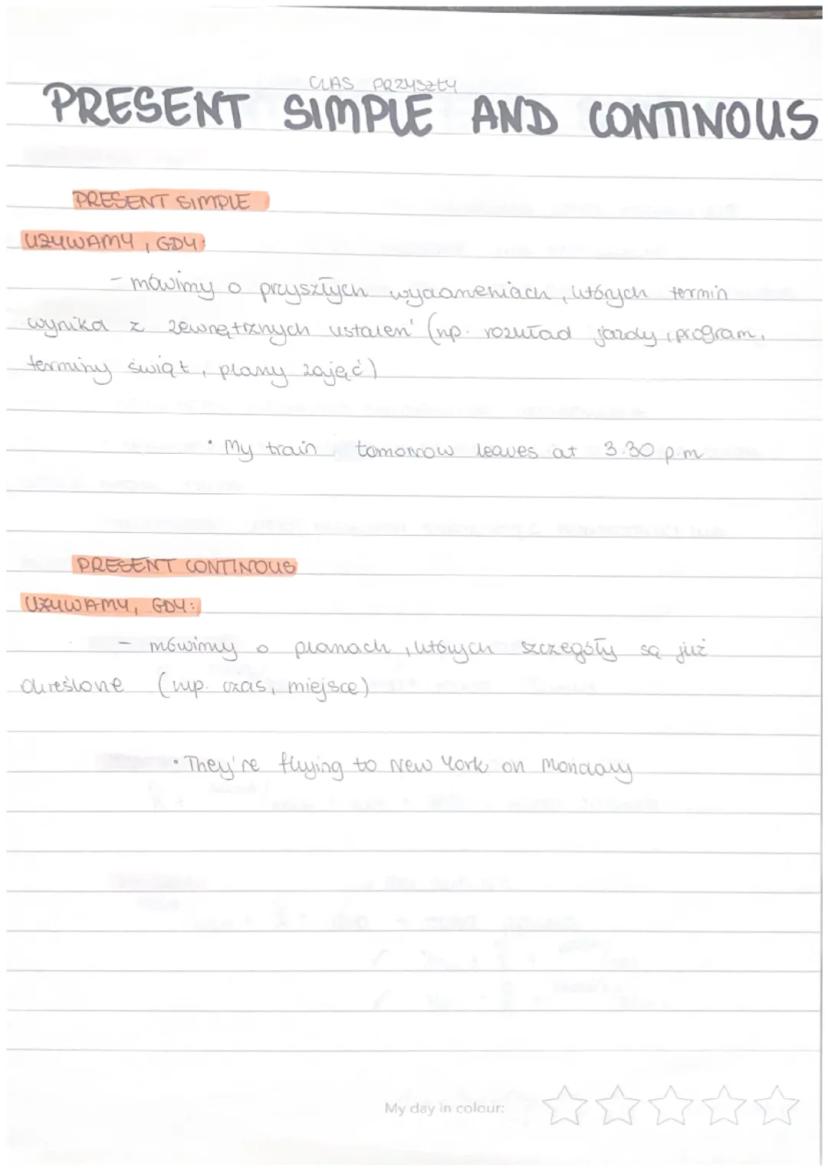 CZAS PRZYSZŁY
PRESENT SIMPLE AND CONTINOUS
PRESENT SIMPLE
UŻYWAMY, GDY:
- mówimy o przyszłych wydarzeniach, których termin
wynika z zewnętrznych ustaleń (np. rozkład jazdy, program,
terminy świąt, plany zajęć)
• My train tomorrow leaves at 3.30 p.m
PRESENT CONTINOUS
UŻYWAMY, GDY:
- mówimy o planach, których szczegóły są już
określone (np. czas, miejsce)
• They're flying to New York on Monday
My day in colour: